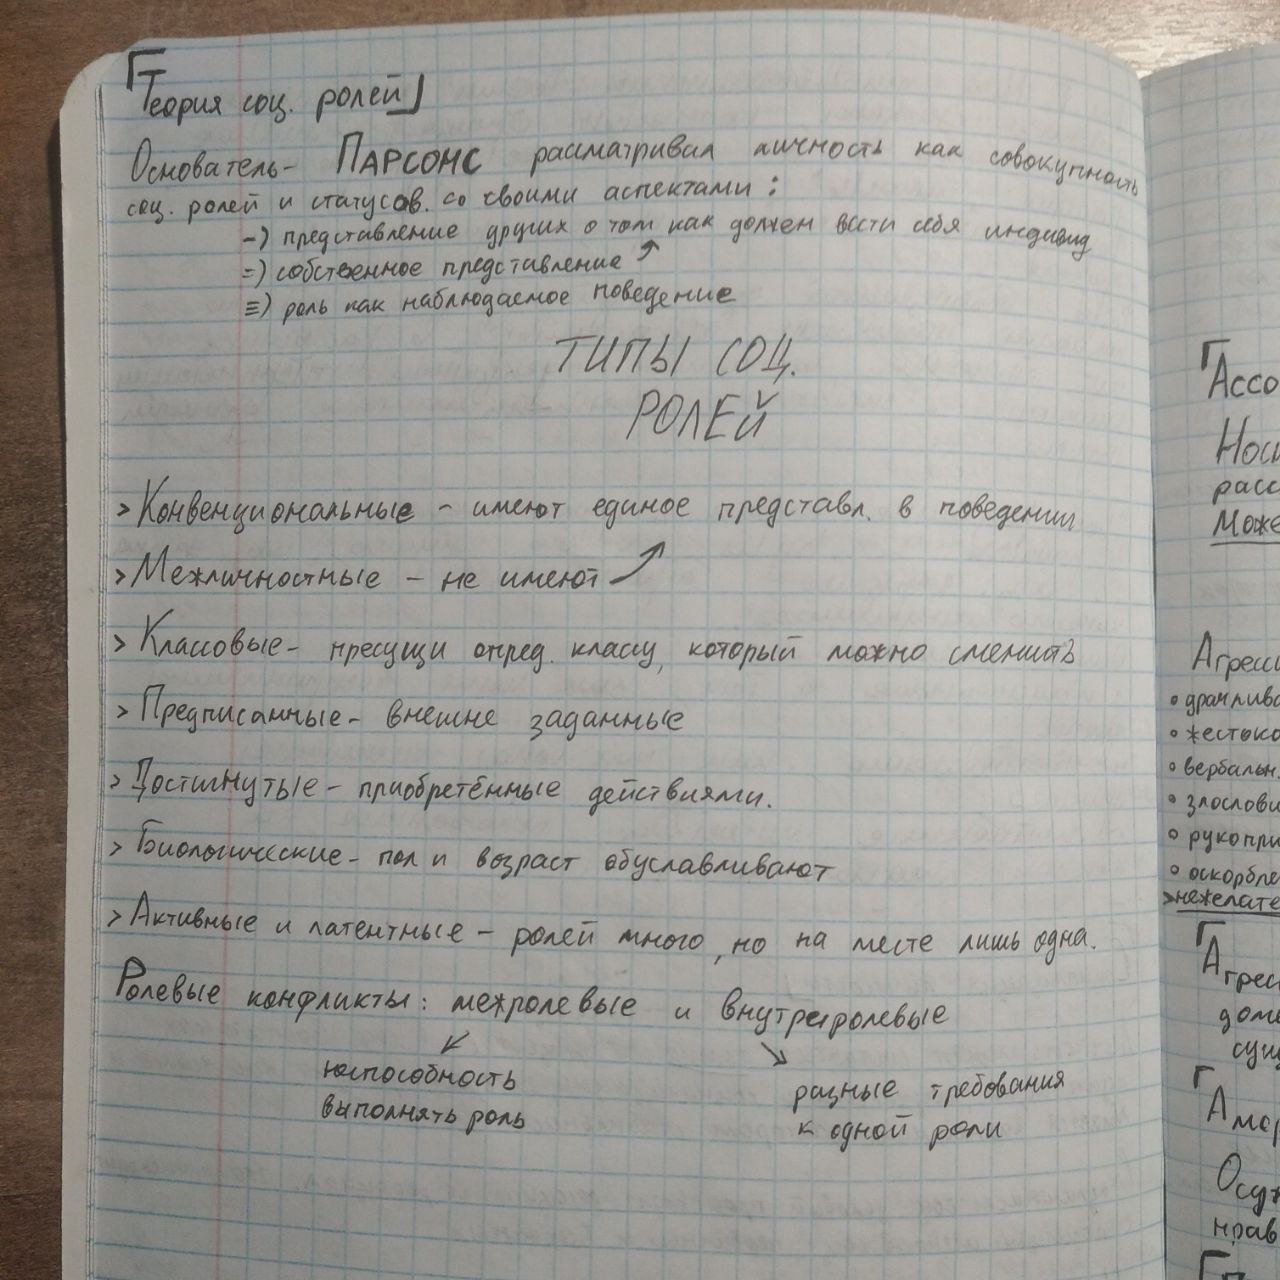 Теория соц. ролей
Основатель- ПАРСОНС рассматривал личность как совокупность
соц. ролей и статусов. со своими аспектами:
-) представление других о том как должен вести себя индивид
=) собственное представление
≡) роль как наблюдаемое поведение
ТИПЫ СОЦ.
РОЛЕЙ
> Конвенциональные - имеют единое представл. в поведении
> Межличностные - не имеют
> Классовые - присущи опред. классу, который можно сменить
> Предписанные - внешне заданные
> Достигнутые - приобретённые действиями.
> Биологические - пол и возраст обуславливают
> Активные и латентные - ролей много, но на месте лишь одна.
Ролевые конфликты: межролевые и внутриролевые
неспособность
выполнять роль
разные требования
к одной роли
Ассо
Носи
расс
Може
Агресси
• драчлива
• жестоко
• вербальн.
• злослови
• рукопри
• оскорбле
>нежелате
Агрес
доми
сущ
Амор
Осуж
нрав